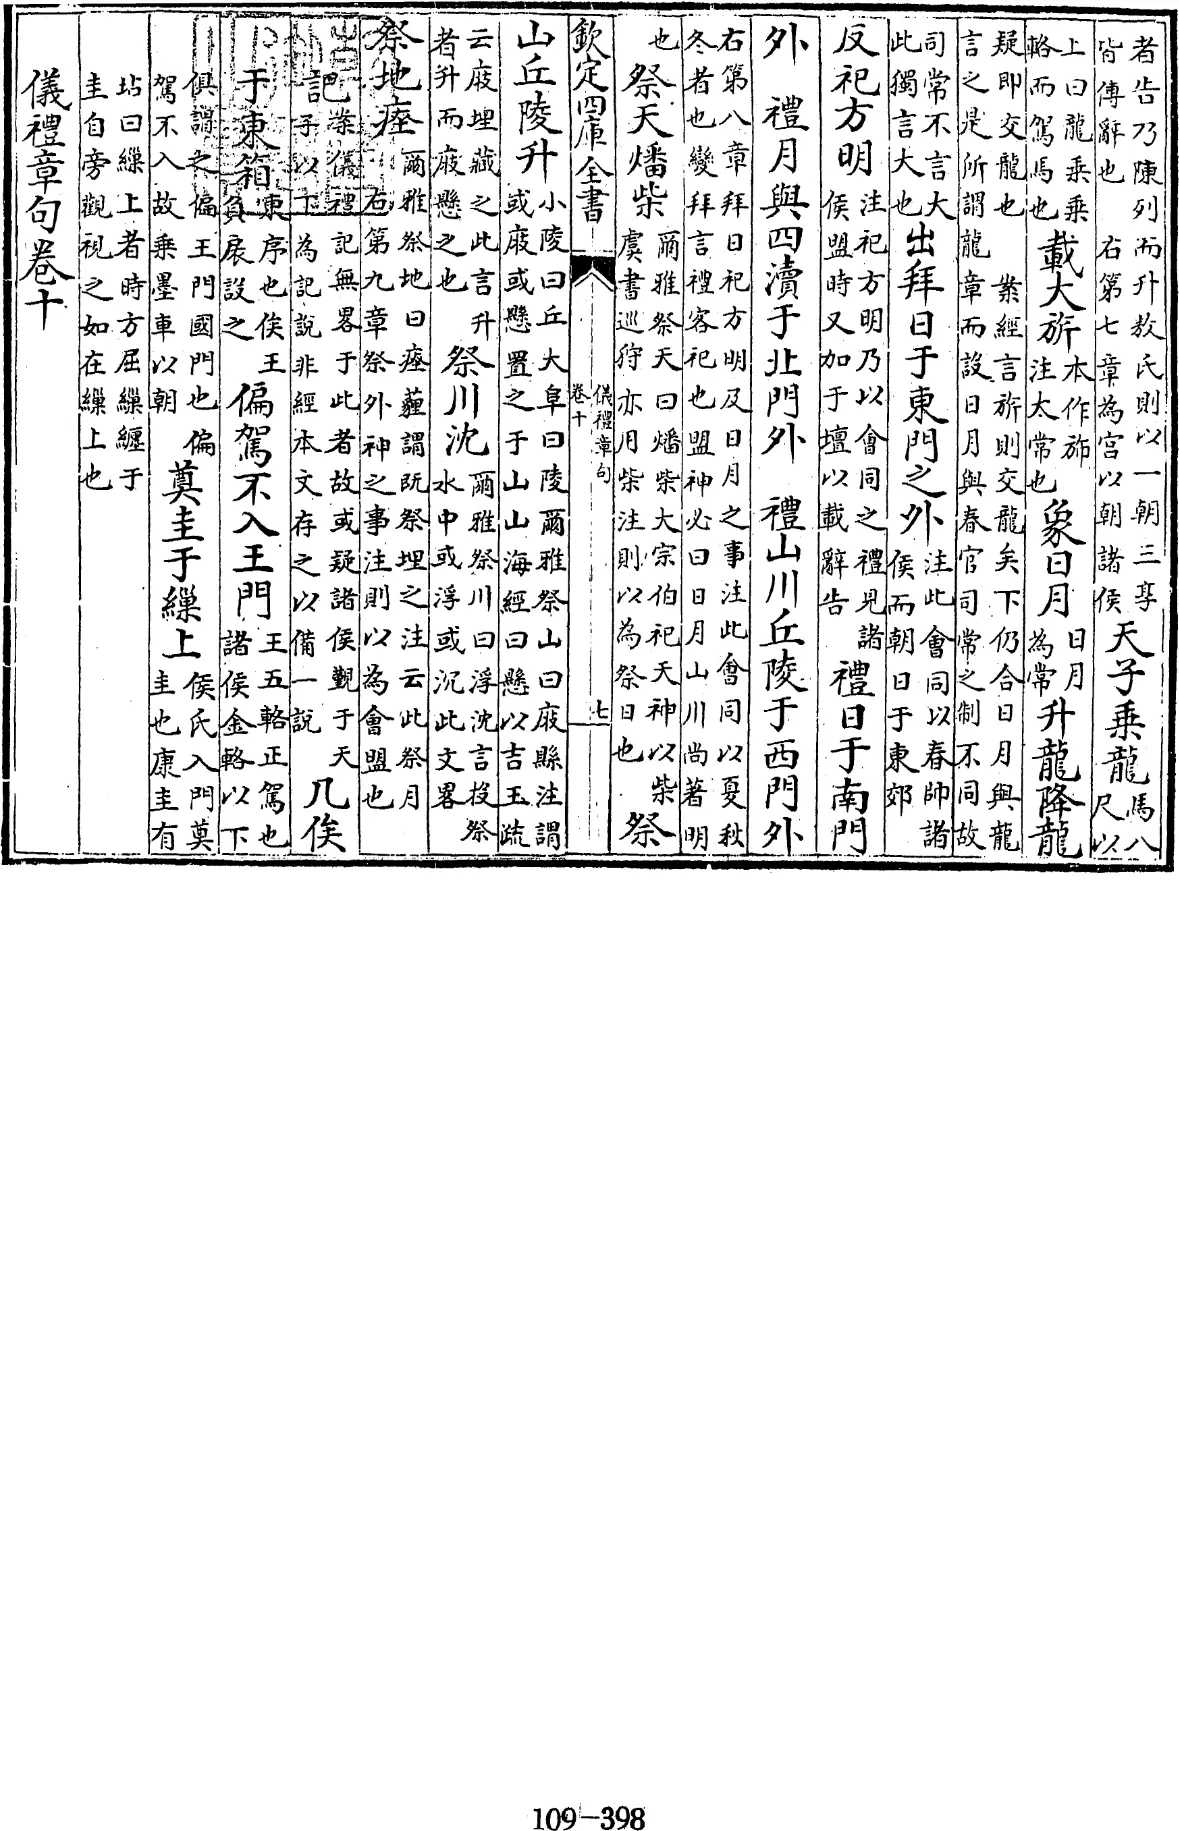 者告乃陳列而升敖氏則以一朝三享
皆傳辭也　右第七章為宮以朝諸侯
天子乘龍馬八尺以
上曰龍乘乘
輅而駕馬也
載大旂本作斾
注太常也
象日月日月
為常
升龍降龍
疑即交龍也　案經言旂則交龍矣下仍合日月與龍
言之是所謂龍章而設日月與春官司常之制不同故
司常不言大
此獨言大也
出拜日于東門之外注此會同以春帥諸
侯而朝日于東郊
反祀方明注祀方明乃以會同之禮見諸
侯盟時又加于壇以載辭告
禮日于南門
外　禮月與四瀆于北門外　禮山川丘陵于西門外
右第八章拜日祀方明及日月之事注此會同以夏秋
冬者也變拜言禮客祀也盟神必曰日月山川尚著明
也
祭天燔柴爾雅祭天曰燔柴大宗伯祀天神以柴
虞書巡狩亦用柴注則以為祭日也
祭
欽定四庫全書
儀禮章句
卷十
七
山丘陵升小陵曰丘大阜曰陵爾雅祭山曰庪縣注謂
或庪或懸置之于山山海經曰懸以吉玉疏
云庪埋藏之此言升
者升而庪懸之也
祭川沈爾雅祭川曰浮沈言投祭
水中或浮或沉此文畧
祭地瘞爾雅祭地曰瘞薶謂既祭埋之注云此祭月
右第九章祭外神之事注則以為會盟也
記案儀禮記無畧于此者故或疑諸侯覲于天
子以下為記說非經本文存之以備一說
几俟
于東箱東序也俟王
負扆設之
偏駕不入王門王五輅正駕也
諸侯金輅以下
俱謂之偏王門國門也偏
駕不入故乘墨車以朝
奠圭于繅上侯氏入門奠
圭也康圭有
坫曰繅上者時方屈繅纏于
圭自旁觀視之如在繅上也
儀禮章句卷十
109-398